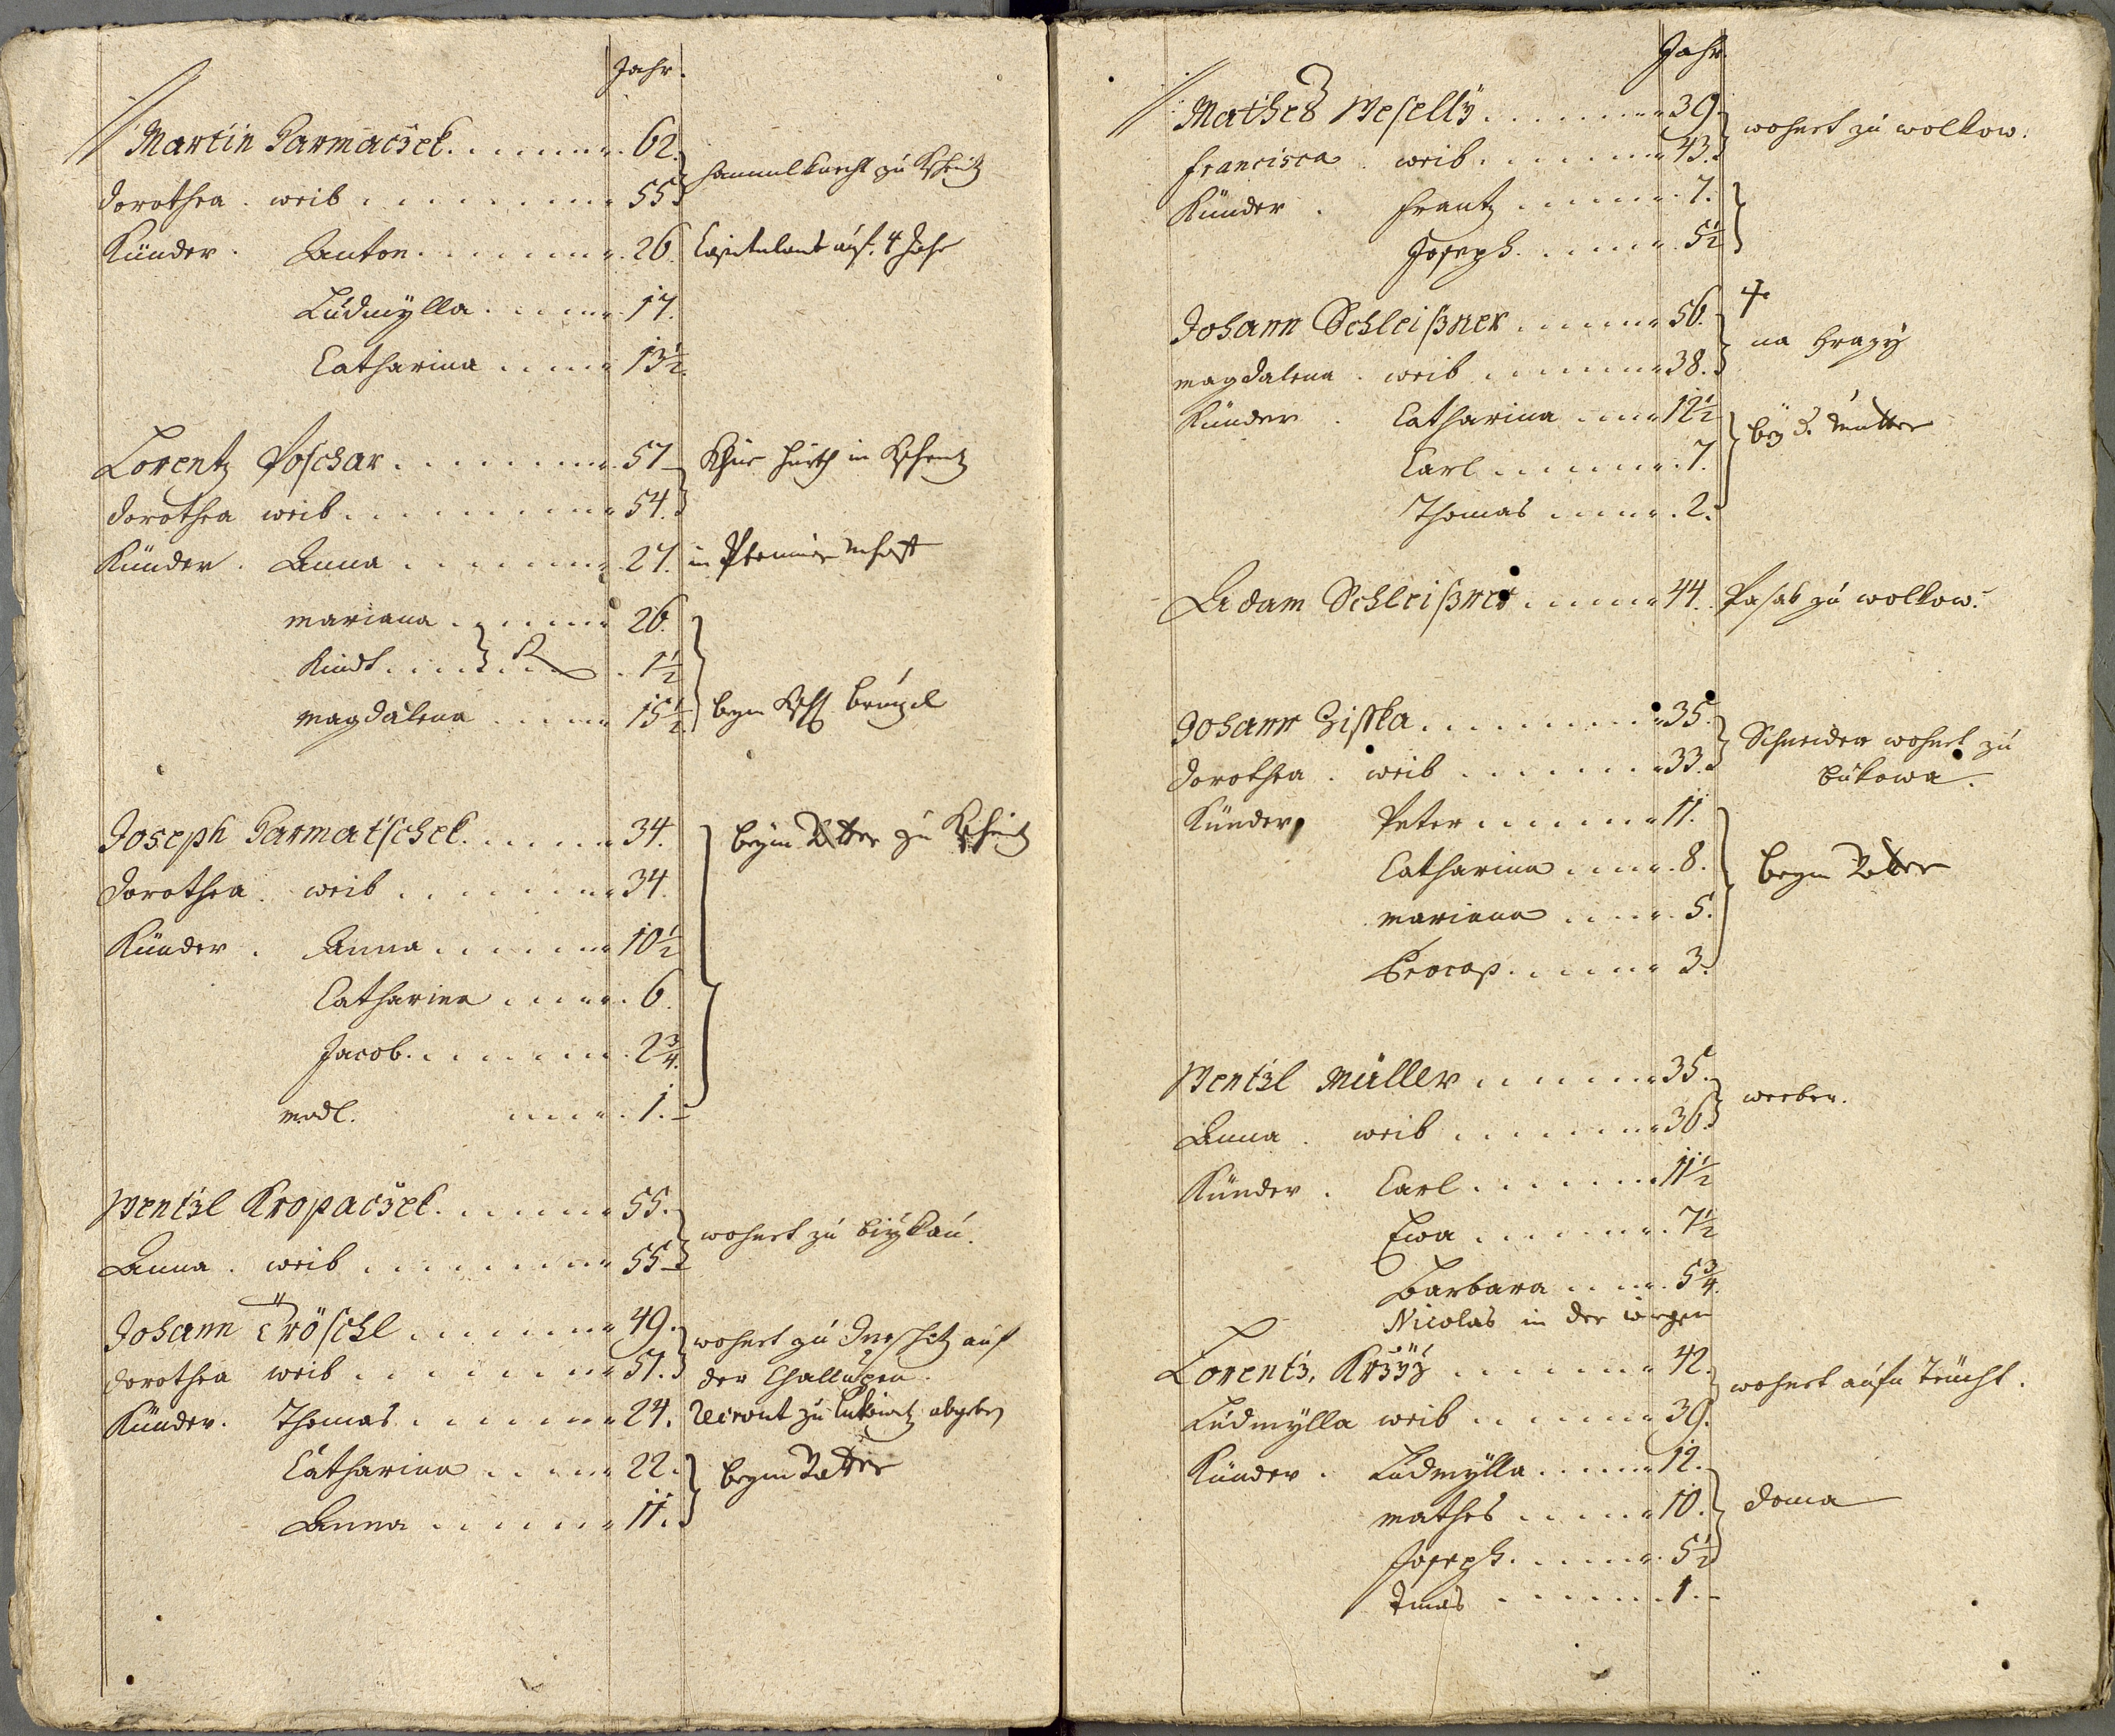 Jahr.
Martin Parmacžek. 62.
Dorothea. weib 55
zu
Künder. Anton. 26. Capitulant auf. 4 Jahr
Ludmÿlla 17.
Catharina 13½.
Lorentz Poschar 57
in
Dorothea weib. 54.
Künder. Anna 27. in
Mariana 26.
Kindt 1½
Magdalena 15½. beym
Joseph Parmatschek. 34. beym Vatter zu
Dorothea. weib 34.
Künder. Anna 10½
Catharina 6.
Jacob. 2¾.
Madl. 1.
Wentzl Kropacžek. 55.
wohnet zu
Anna. weib 55
Johann Tröschl 49. wohnet zu auf
Dorothea weib 51. der Challupen.
Künder. Thomas 24. zu abgeben
Catharina 22. beym Vatter
Anna 11.
Jahr.
Mathes Weselly 39. wohnet zu Wolkow.
Francisca weib. 43.
Künder. Frantz 7.
Joseph. 5½
Johann Schleißner 56.
na
Magdalena. weib 38.
Künder. Catharina 12½ beÿ d. Mutter
Carl 7.
Thomas 2.
Adam Schleißner 44. Pasak zu Wolkow.
Johann Zisska 35. Schneider wohnet zu
Dorothea. weib 33. Bukowa.
Künder, Peter 11.
Catharina 8. beym Vatter
Mariana 5.
Procop. 3.
Wentzl Müller 35.
Anna. weib 36.
Künder. Carl 11½
Ewa 7½
Barbara 5¾.
Nicolas in der wiegen
Lorentz. 42. wohnet aufn
Ludmÿlla weib 39.
Künder. Ludmÿlla 12.
Mathes 10. doma
Joseph. 5½
1.